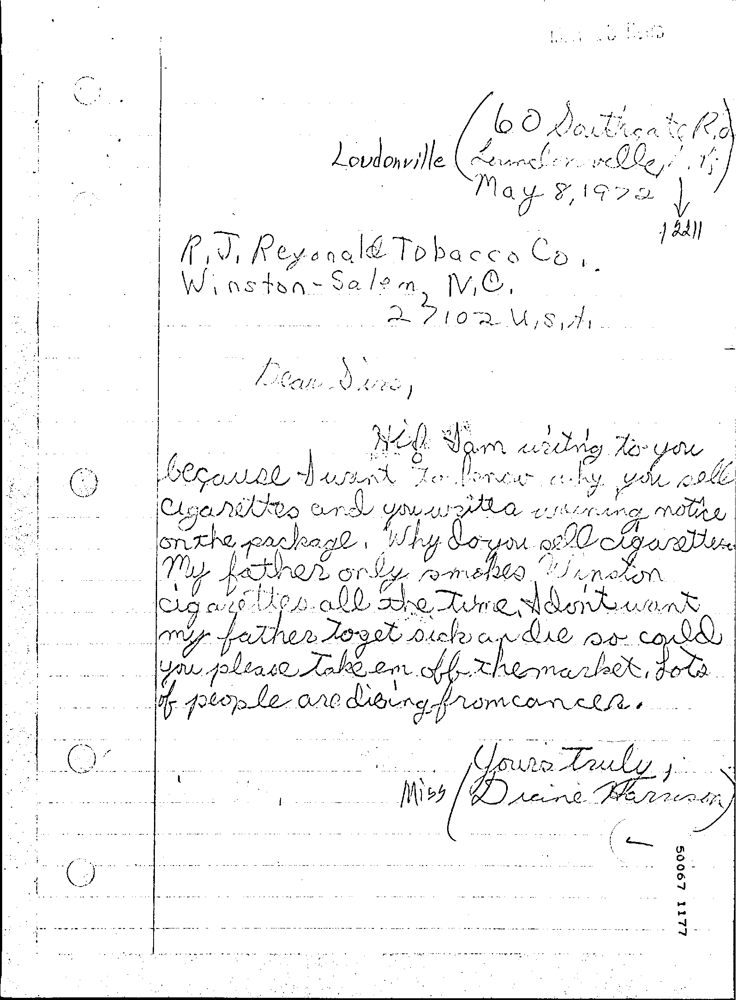 60 Southgate Rd
Loudonville Loundonville, N.Y.
May 8, 1972
12211
R.J. Reyonald Tobacco Co.
Winston-Salem, N.C.
27102 U.S.A.
Dear Sirs,
Hi! I am writng to you
because I want to know why you sell
cigarettes and you write a warning notice
on the package. Why do you sell cigarettes.
My father only smokes Winston
cigarettes all the time, I don't want
my father to get sick an die so could
you please take em off the market. Lots
of people are dieing from cancer.
Yours truly,
Miss Diane Harrison
50067 1177